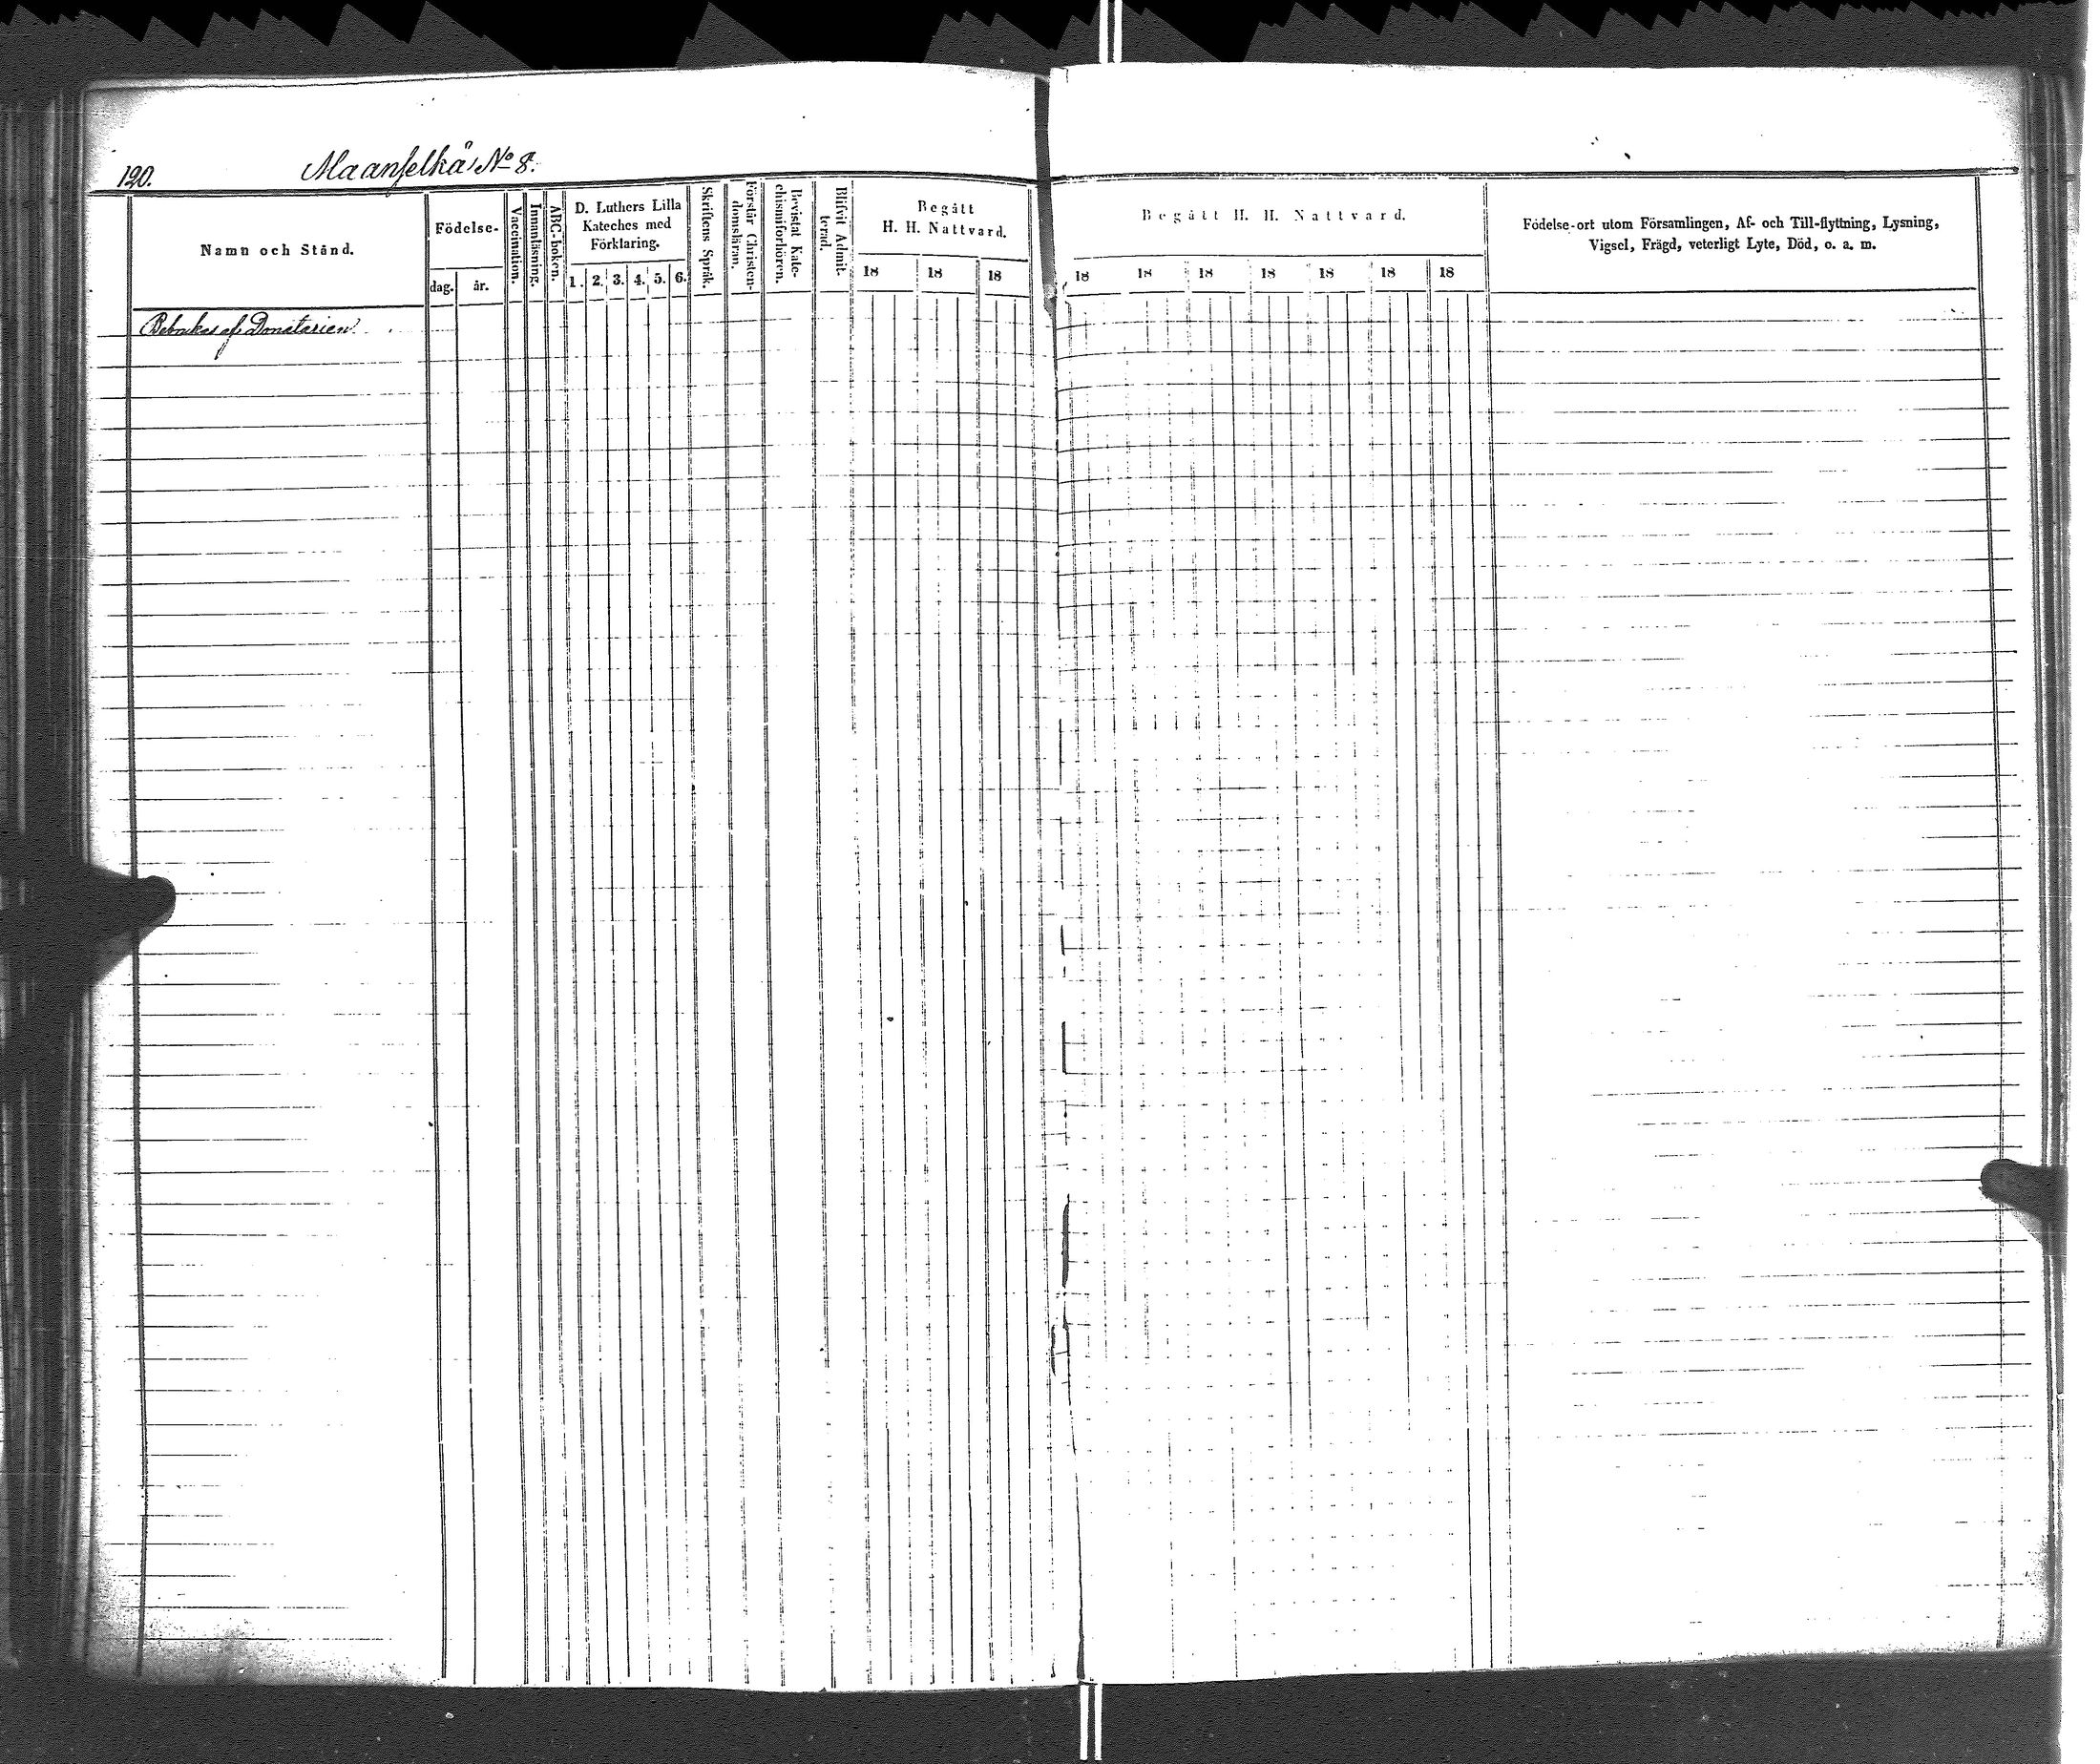 120.
Maanselkä, No 8.
Namn och Stånd.
Födelse-
dag.
år.
Vaccination.
Innanläsning.
ABC-boken.
D. Luthers Lilla
Kateches med
Förklaring.
1. 2. 3. 4. 5. 6.
Skriftens Språk.
Förstår Christen-
domsläran.
Bevistat Kate-
chismiförhören.
Blifvit Admit-
terad.
Begått
H. H. Nattvard.
18 18 18
Begått H. H. Nattvard.
18 18 18 18 18 18 18
Födelse-ort utom Församlingen, Af- och Till-flyttning, Lysning,
Vigsel, Frägd, veterligt Lyte, Död, o. a. m.
Bebrukas af Donatarien.